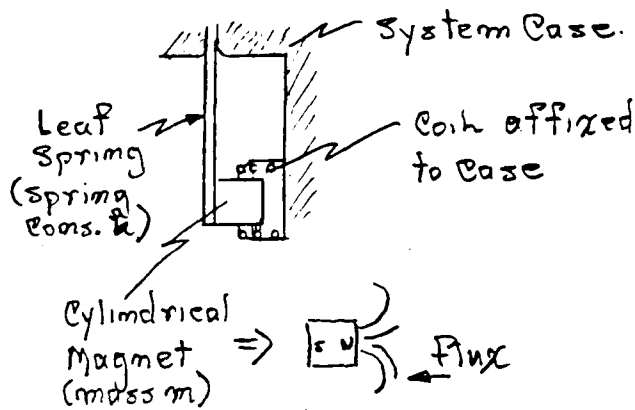 System Case.
Leaf
Spring
(spring
cons. k)
Coil affixed
to case
Cylindrical
Magnet
(mass m)
S N
Flux